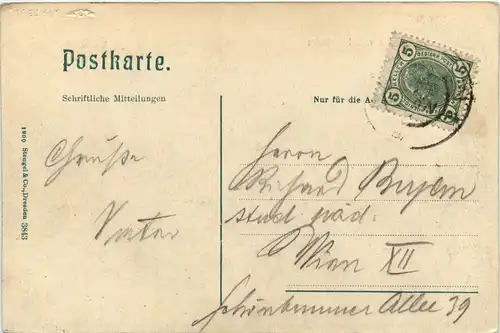 Postkarte.
Schriftliche Mitteilungen
Nur für die A
5
5
Grüße
Vater
1909 Stengel & Co., Dresden 3843
Herrn
Richard
stud päd.
Wien XII
Schönbrunner Allee 39